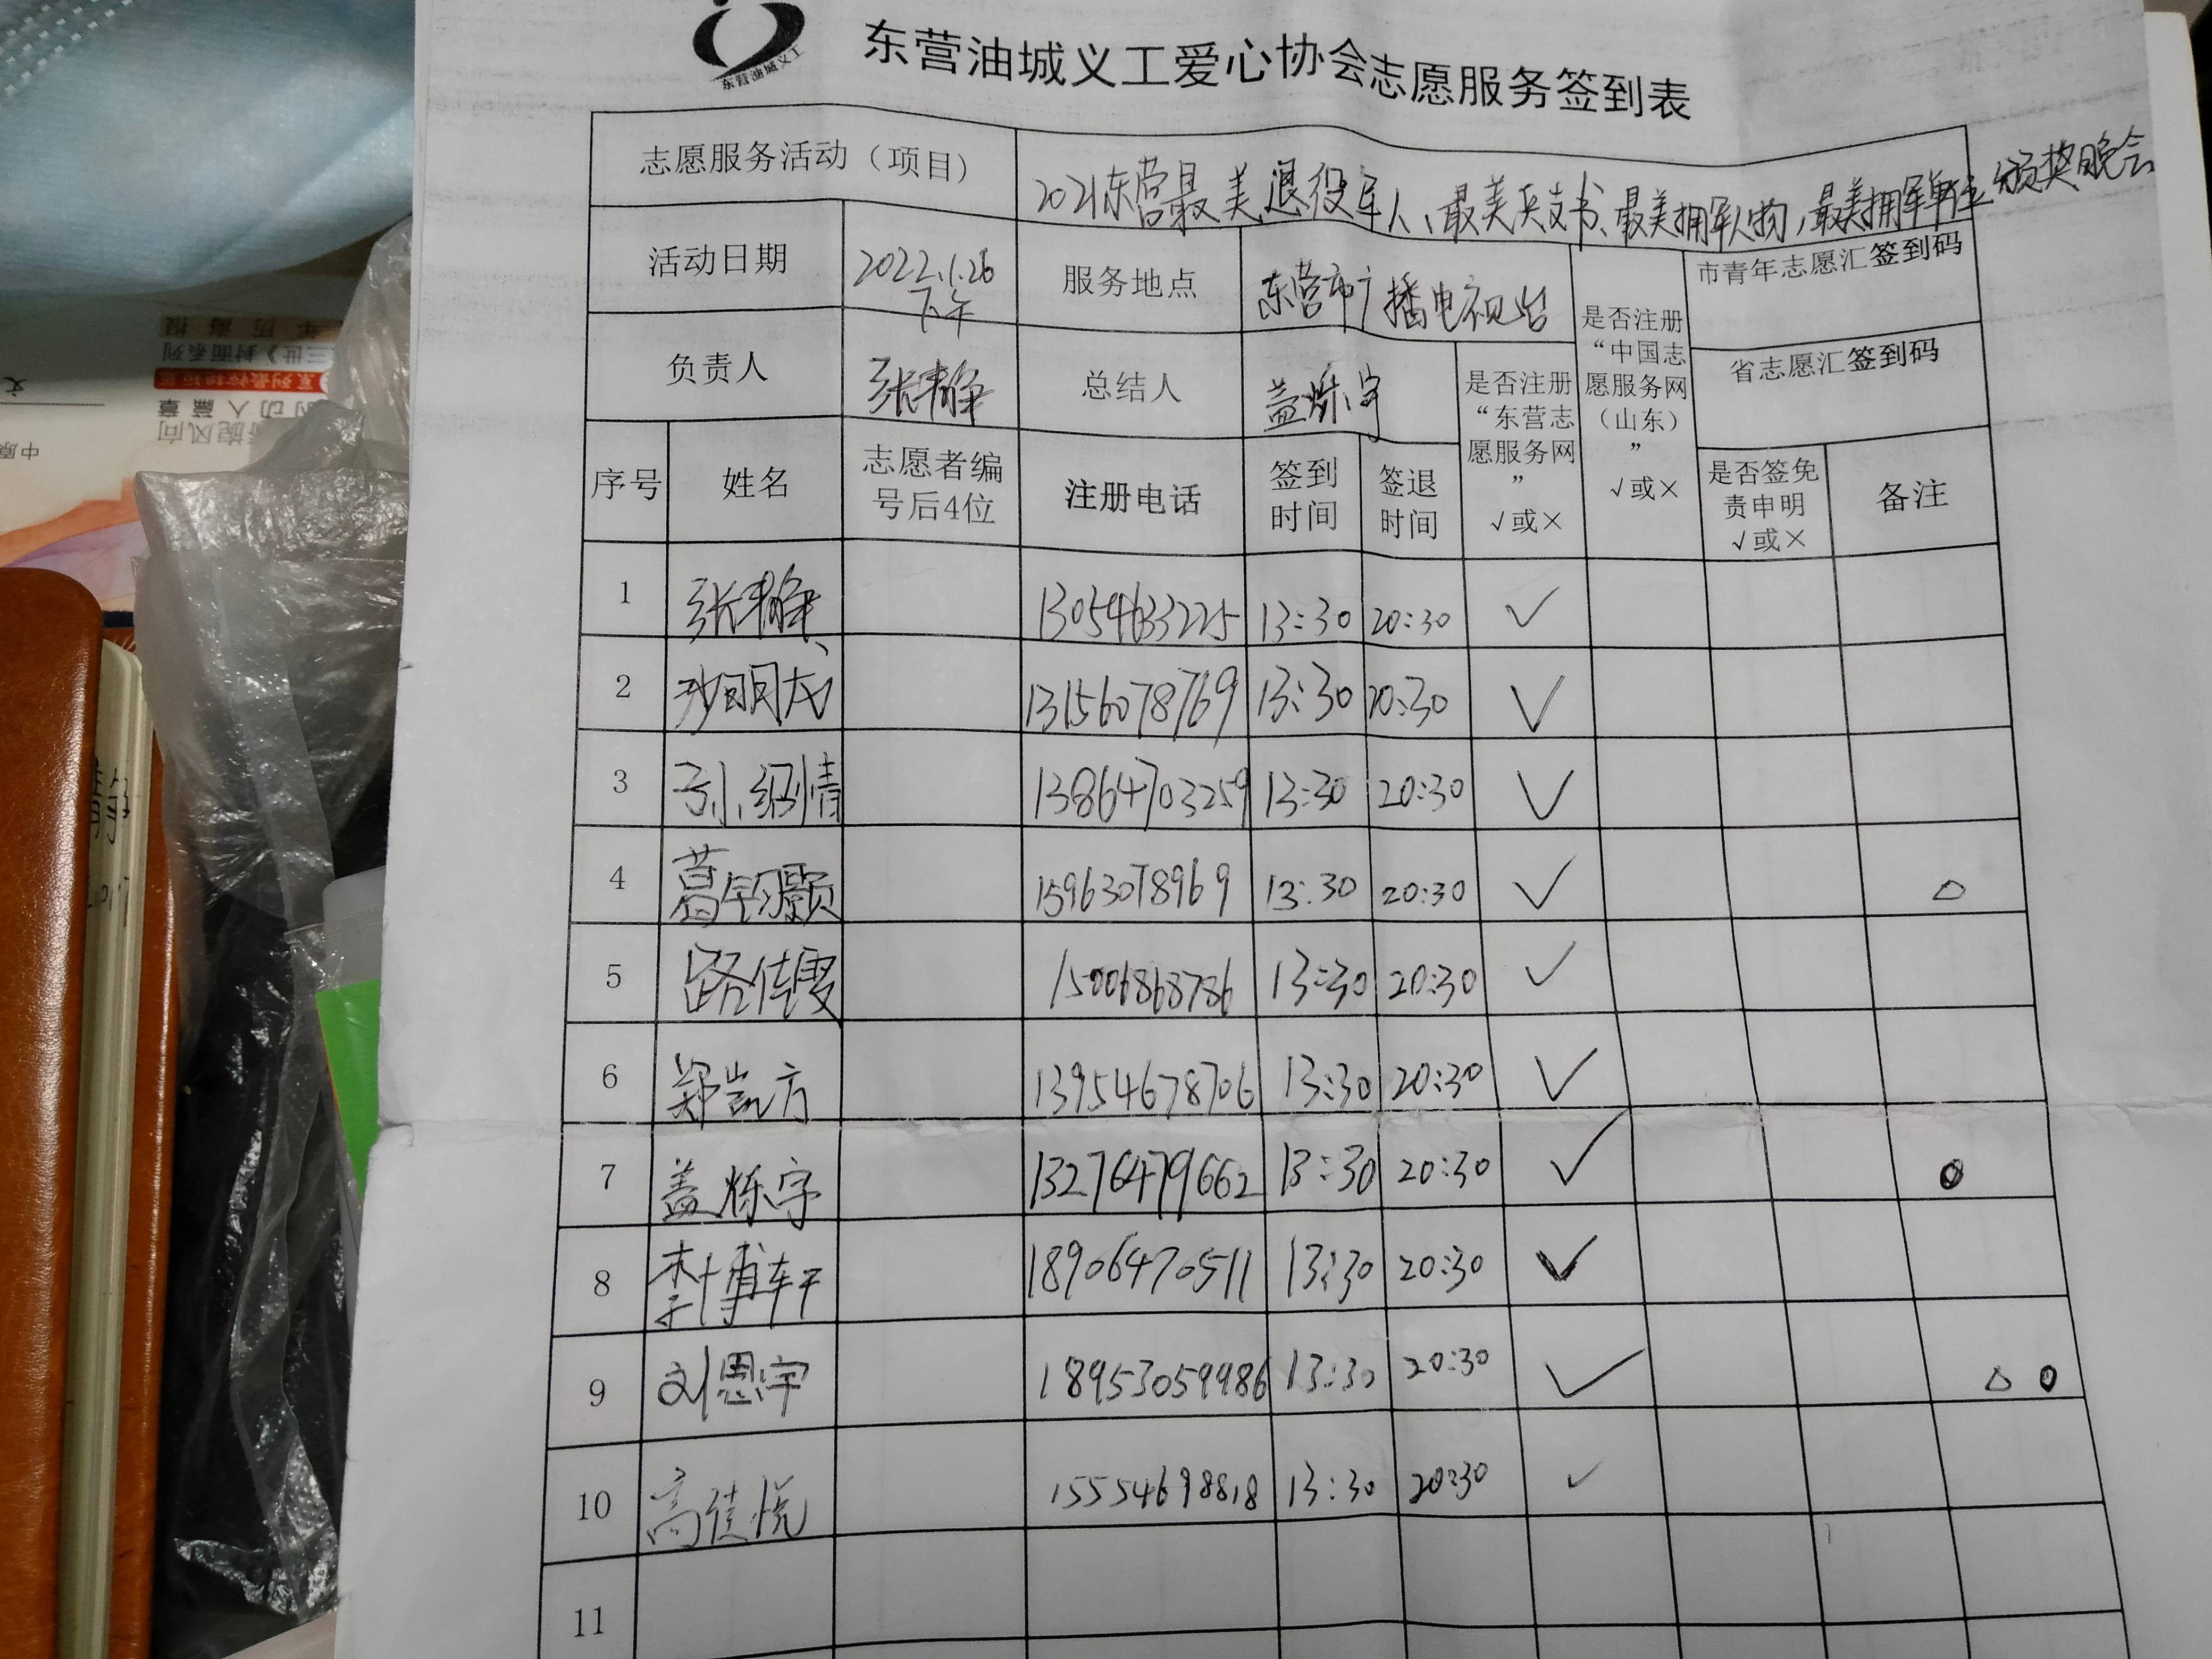 东营油城义工
东营油城义工爱心协会志愿服务签到表
志愿服务活动（项目） 2021东营最美退役军人、最美兵支书、最美拥军人物，最美拥军单位颁奖晚会
活动日期 2022.1.26 下午 服务地点 东营市广播电视台 市青年志愿汇签到码
负责人 张静 总结人 盖烁宇 省志愿汇签到码
是否注册“东营志愿服务网” √或×
是否注册“中国志愿服务网（山东）” √或×
序号 姓名 志愿者编号后4位 注册电话 签到时间 签退时间 是否签免责申明 √或× 备注
1 张静 13054633225 13:30 20:30 ✓
2 13156078769 13:30 20:30 ✓
3 13864703259 13:30 20:30 ✓
4 15963078969 13:30 20:30 ✓ △
5 路传雯 15006868786 13:30 20:30 ✓
6 郑凯方 13954678706 13:30 20:30 ✓
7 盖烁宇 13276479662 13:30 20:30 ✓ 0
8 李博轩 18906470511 13:30 20:30 ✓
9 刘恩宇 18953059986 13:30 20:30 ✓ △ 0
10 高佳悦 15554698818 13:30 20:30 ✓
11
年历海报
三世》封面系列
动人篇章
旋风向
中原
文